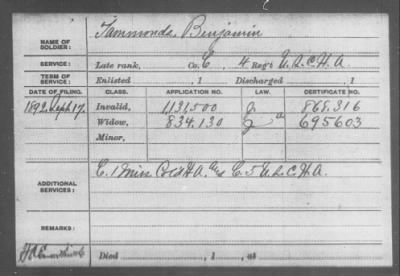 NAME OF SOLDIER: Hammonds, Benjamin
SERVICE: Late rank, Co. E, 4 Reg't U.S.C.H.A.
TERM OF SERVICE: Enlisted , 1 Discharged , 1
DATE OF FILING. CLASS. APPLICATION NO. LAW. CERTIFICATE NO.
1892 Sept 17 Invalid, 1,131,500 868.316
Widow, 834.130 695603
Minor,
ADDITIONAL SERVICES: C. 1 Miss Cold H.A. and C. 5 U.S.C.H.A.
REMARKS:
Died , 1 , at